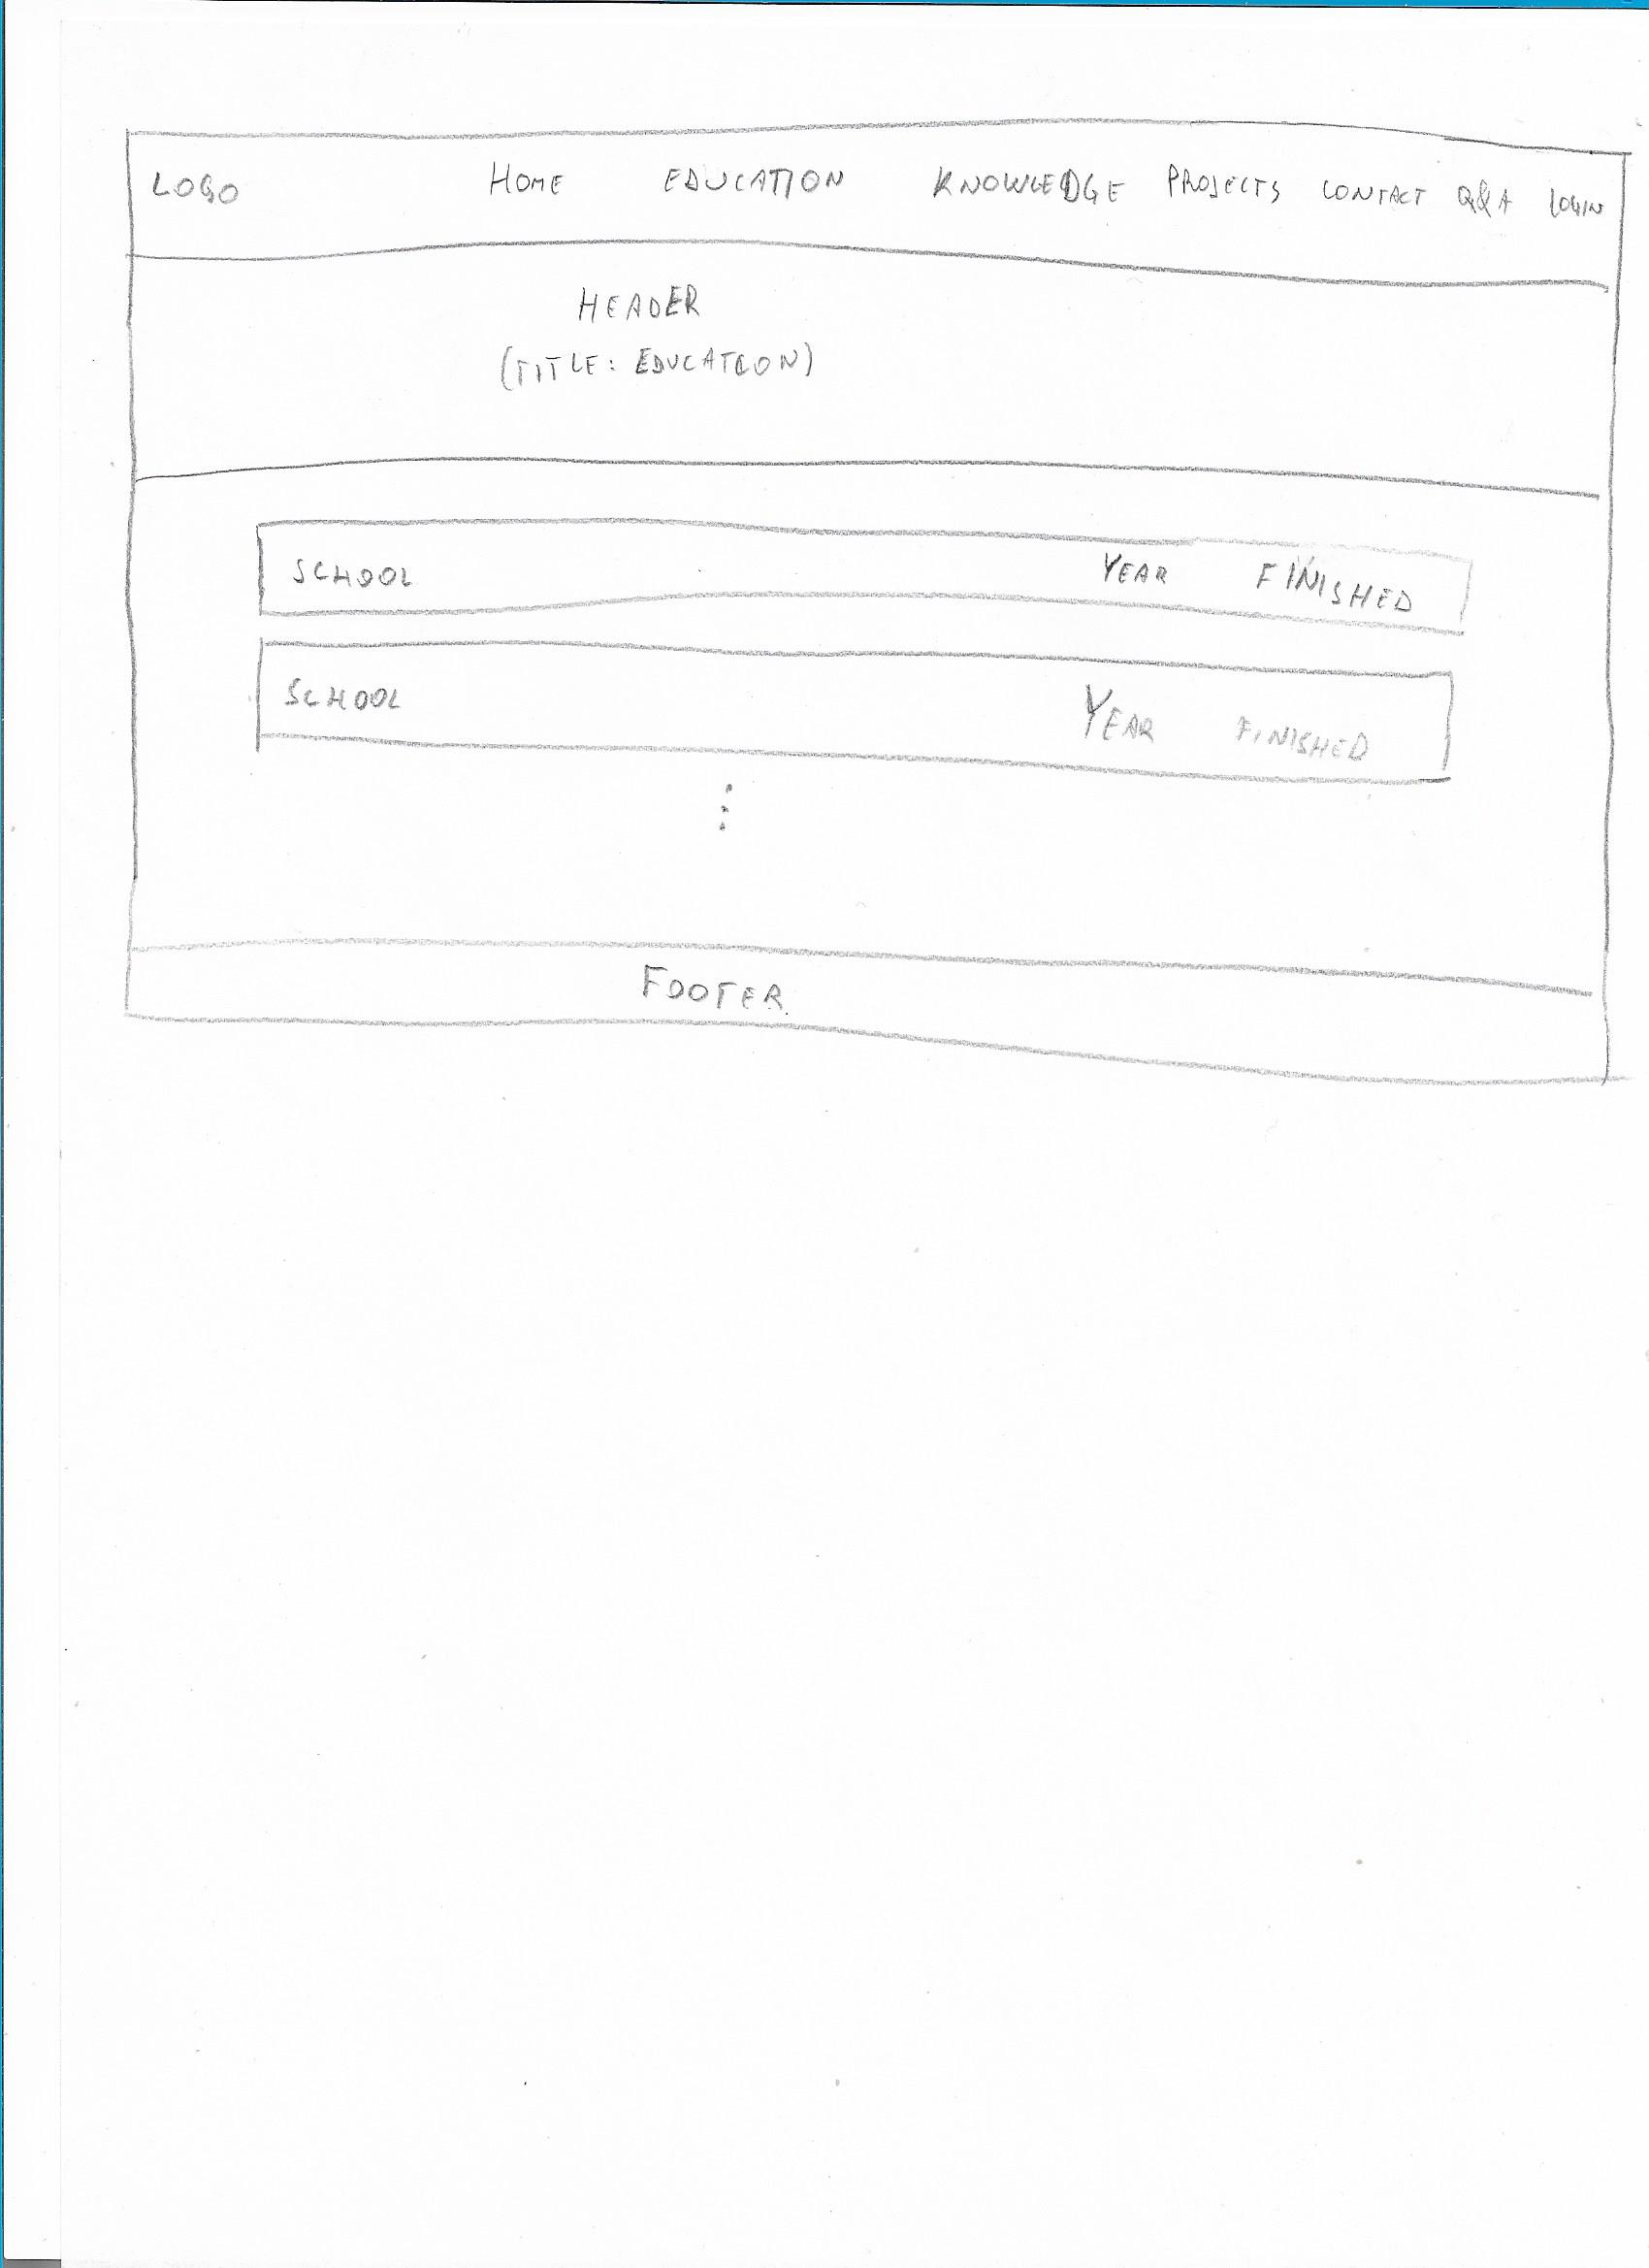 LOGO HOME EDUCATION KNOWLEDGE PROJECTS CONTACT Q&A LOGIN
HEADER
(TITLE: EDUCATION)
SCHOOL YEAR FINISHED
SCHOOL YEAR FINISHED
⋮
FOOTER